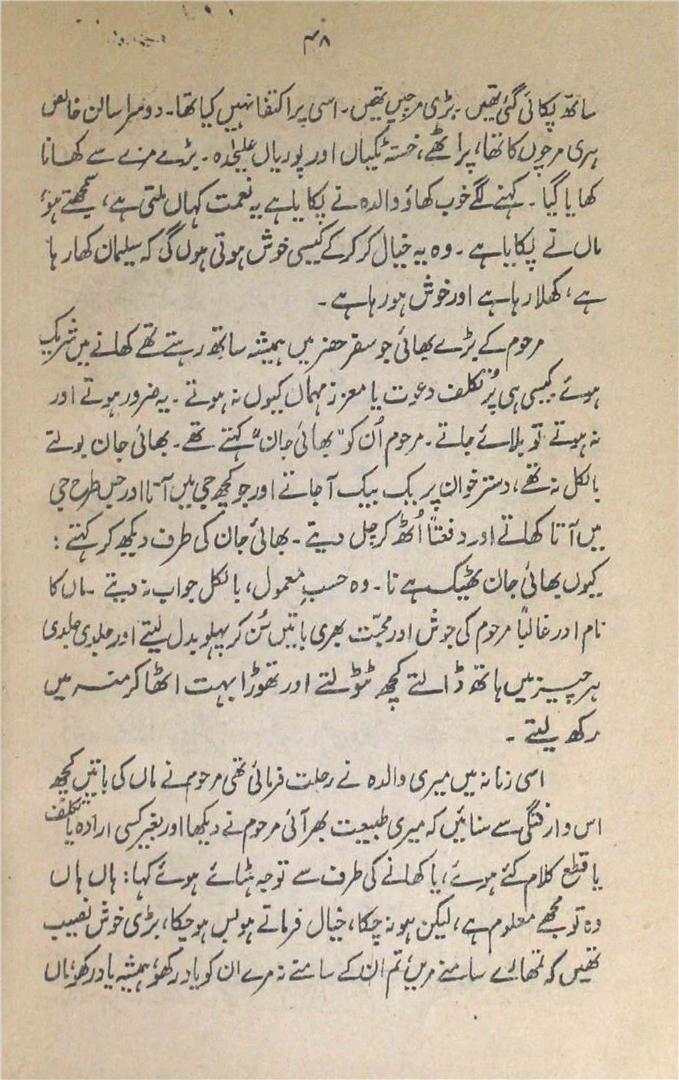 ۴۸
ساتھ پکائی گئی تھیں۔ بڑی مرچیں تھیں۔ اسی پر اکتفا نہیں کیا تھا۔ دوسرا سالن خالص
ہری مرچوں کا تھا، پراٹھے، خستہ ٹکیاں اور پوریاں علیٰحدہ۔ بڑے مزے سے کھانا
کھایا گیا۔ کہنے لگے خوب کھاؤ والدہ نے پکایا ہے یہ نعمت کہاں ملتی ہے، سمجھتے ہو،
ماں نے پکایا ہے۔ وہ یہ خیال کر کر کے کیسی خوش ہوتی ہوں گی کہ سلیمان کھا رہا
ہے، کھلا رہا ہے اور خوش ہو رہا ہے۔
مرحوم کے بڑے بھائی جو سفر حضر میں ہمیشہ ساتھ رہتے تھے کھانے میں شریک
ہوئے کیسی ہی پُر تکلف دعوت یا معزز مہماں کیوں نہ ہوتے۔ یہ ضرور ہوتے اور
نہ ہوتے تو بلائے جاتے۔ مرحوم اُن کو "بھائی جان" کہتے تھے۔ بھائی جان بولتے
بالکل نہ تھے، دسترخوان پر یک بیک آجاتے اور جو کچھ جی میں آتا اور جس طرح جی
میں آتا کھاتے اور دفعتاً اُٹھ کر چل دیتے۔ بھائی جان کی طرف دیکھ کر کہتے:
کیوں بھائی جان ٹھیک ہے نا۔ وہ حسبِ معمول، بالکل جواب نہ دیتے۔ ماں کا
نام اور غالباً مرحوم کی جوش اور محبّت بھری باتیں سُن کر پہلو بدل لیتے اور جلدی جلدی
ہر چیز میں ہاتھ ڈالتے کچھ ٹٹولتے اور تھوڑا بہت اٹھا کر منہ میں
رکھ لیتے۔
اسی زمانہ میں میری والدہ نے رحلت فرمائی تھی مرحوم نے ماں کی باتیں کچھ
اس وارفتگی سے سنائیں کہ میری طبیعت بھر آئی مرحوم نے دیکھا اور بغیر کسی ارادہ یا تکلف
یا قطع کلام کئے ہوئے، یا کھانے کی طرف سے توجہ ہٹائے ہوئے کہا: ہاں ہاں
وہ تو مجھے معلوم ہے، لیکن ہو نہ چکا، خیال فرماتے ہو بس ہو چکا، بڑی خوش نصیب
تھیں کہ تمھارے سامنے مریں، تم ان کے سامنے نہ مرے ان کو یاد رکھو، ہمیشہ یاد رکھو، ماں